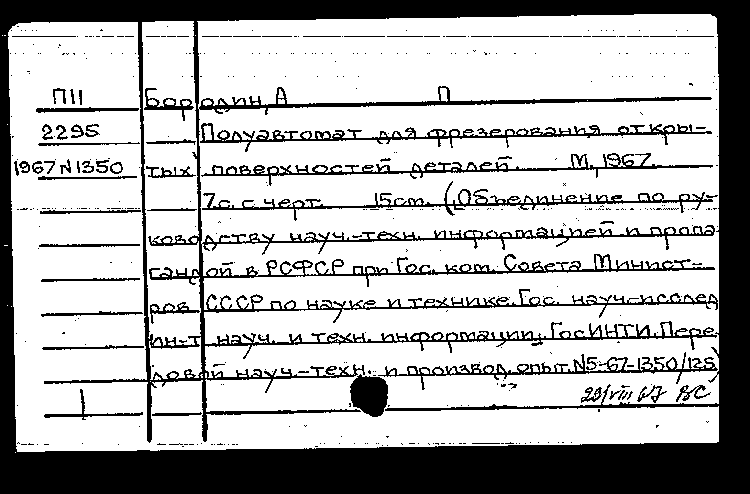 П11 Бородин, А П
2295 Полуавтомат для фрезерования откры-
1967 N1350 тых поверхностей деталей. М., 1967.
7с. с черт. 15cm. (Объединение по ру-
ководству науч.-техн. информацией и пропа
гандой в РСФСР при Гос. ком. Совета Минист-
ров СССР по науке и технике. Гос. науч.-исслед
ин-т науч. и техн. информации. ГосИНТИ. Пере
довой науч.-техн. и производ. опыт. N5-67-1350/125)
1 29/VIII 67 ВС